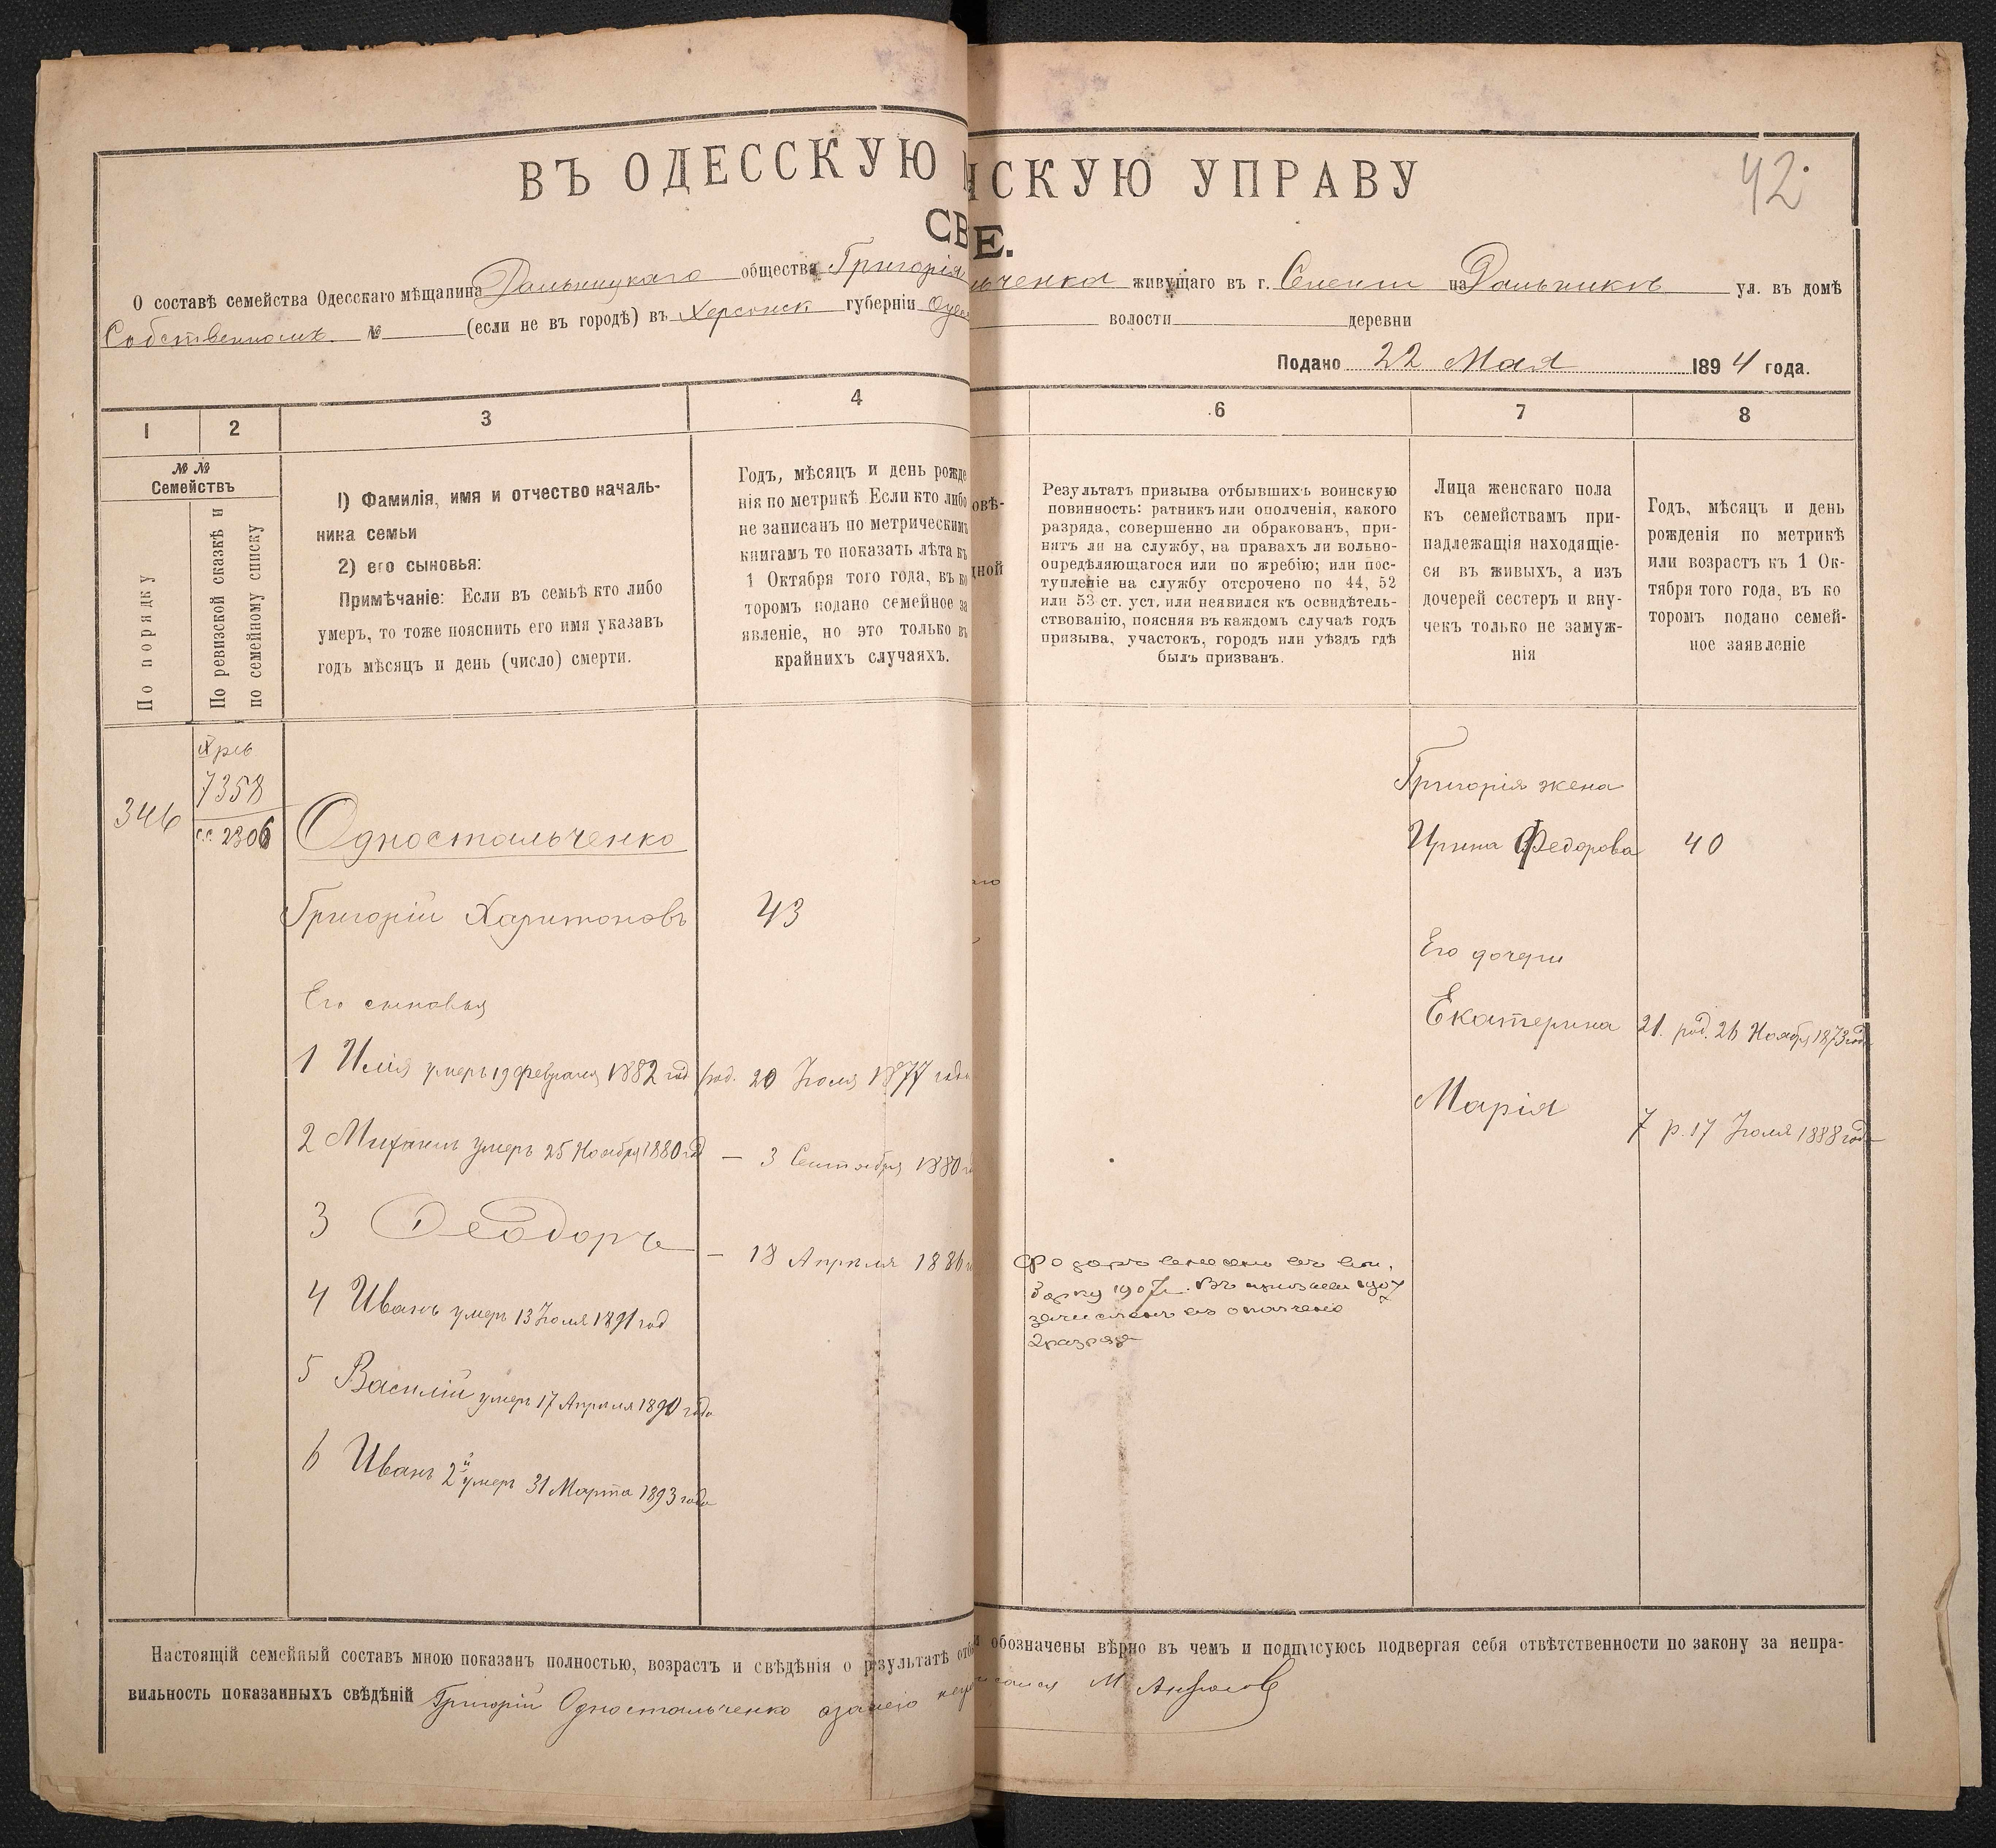 ВЪ ОДЕССКУЮ
НСКУЮ УПРАВУ
42
СВ
Е.
О составѣ семейства Одесскаго мѣщанина Дальницкаго общества Григорія
ьченка живущаго въ г. Селеніи на Дальникъ ул. въ домѣ
Собственномъ № (если не въ городѣ) въ Херсонск губерніи Одес
волости деревни
Подано 22 Мая 1894 года.
1 2 3 4
6 7 8
№ №
Семействъ
По порядку
По ревизской сказкѣ и
по семейному списку
1) Фамилія, имя и отчество началь-
ника семьи
2) его сыновья:
Примѣчаніе: Если въ семьѣ кто либо
умеръ, то тоже пояснить его имя указавъ
годъ мѣсяцъ и день (число) смерти.
Годъ, мѣсяцъ и день рожде
нія по метрикѣ Если кто либо
не записанъ по метрическимъ
книгамъ то показать лѣта къ
1 Октября того года, въ ко
торомъ подано семейное за
явленіе, но это только въ
крайнихъ случаяхъ.
овѣ-
дной
Результатъ призыва отбывшихъ воинскую
повинность: ратникъ или ополченія, какого
разряда, совершенно ли обракованъ, при-
нятъ ли на службу, на правахъ ли вольно-
опредѣляющагося или по жребію; или пос-
тупленіе на службу отсрочено по 44, 52
или 53 ст. уст. или неявился къ освидѣтель-
ствованію, поясняя въ каждомъ случаѣ годъ
призыва, участокъ, городъ или уѣздъ гдѣ
былъ призванъ.
Лица женскаго пола
къ семействамъ при-
надлежащія находящіе-
ся въ живыхъ, а изъ
дочерей сестеръ и вну-
чекъ только не замуж-
нія
Годъ, мѣсяцъ и день
рожденія по метрикѣ
или возрастъ къ 1 Ок-
тября того года, въ ко
торомъ подано семей-
ное заявленіе
346
7358
с.с. 2306
Одностальченко
Григорій Харитоновъ 43
Его сыновья
1 Илія умеръ 19 февраля 1882 год род. 20 Іюля 1877 года
2 Михаилъ умеръ 25 Ноября 1880 год — 3 Сентября 1880
3 Феодоръ — 18 Апреля 1886
4 Иванъ умеръ 13 Іюля 1891 год
5 Василій умеръ 17 Апреля 1890 года
6 Иванъ 2й умеръ 31 Марта 1893 года
Федоръ внесенъ въ вы.
борку 1907 г. Въ призывъ 1907
зачисленъ въ ополченіе
2 разряда
Григорія жена
Ирина Федорова 40
Его дочери
Екатерина 21. род. 26 Ноября 1873 года
Марія 7 р. 17 Іюля 1888 года
Настоящій семейный составъ мною показанъ полностью, возрастъ и свѣдѣнія о результатѣ отб
и обозначены вѣрно въ чемъ и подписуюсь подвергая себя отвѣтственности по закону за непра-
вильность показанныхъ свѣдѣній Григорій Одностальченко азанего
М.